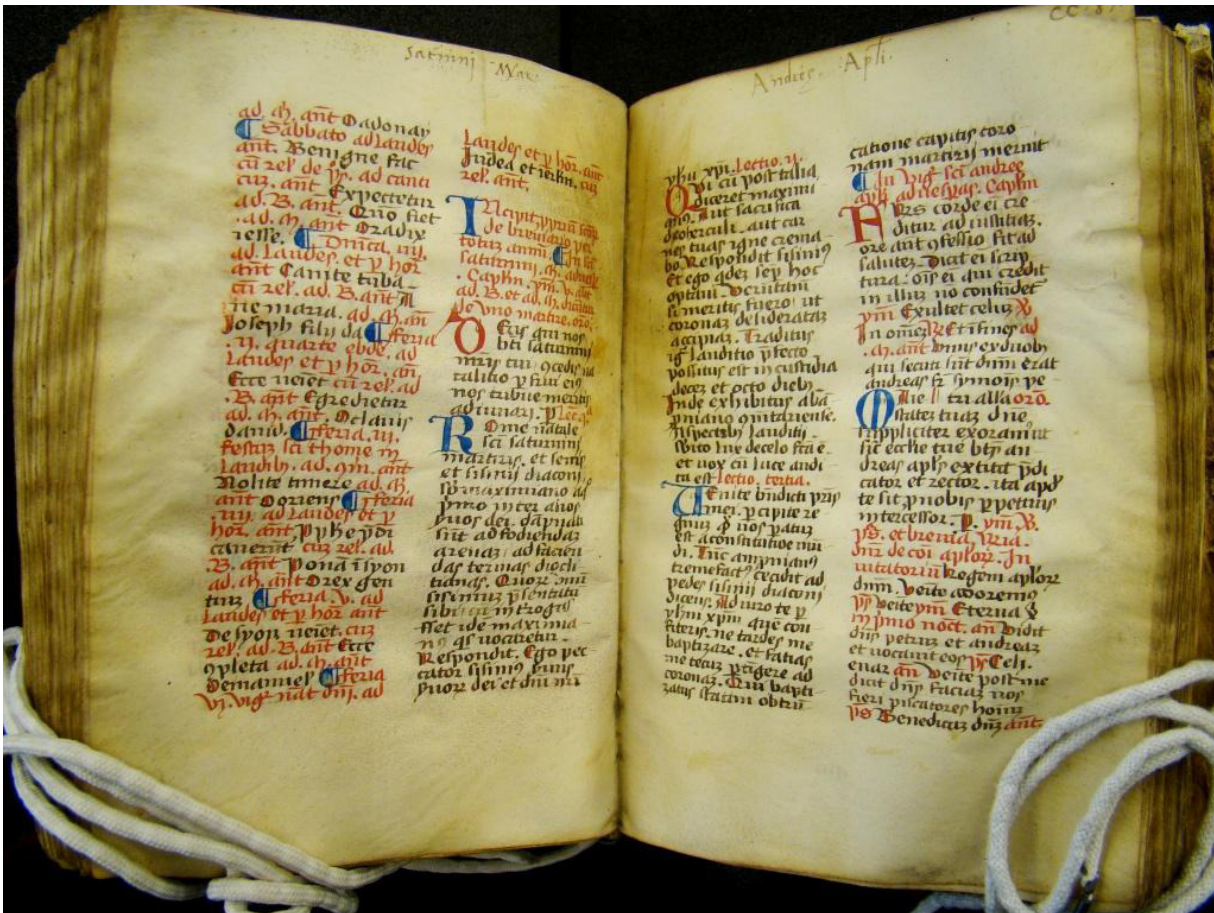 Saturnini Mar.
ad. M. ant Oadonay
Sabbato ad laudes
ant. Benigne fac
cū rel de ps. ad canti
cuz. ant Expectetur
ad. B. ant. Quo fiet
ad. M. ant Oradix
iesse. Dnīca. iiij.
ad. Laudes. et p hor
ant Canite tuba
cū rel. ad. B. ant A
ue maria. ad. M. an
Joseph fily da feria
.ij. quarte ebde. ad
laudes et p hor. an
Ecce ueiet cū rel. ad
.B. ant Egredietur
ad. M. ant. Oclauis
dauid. feria. iij.
festuz sci thome in
laudib. ad. ant
Nolite timere ad. M.
ant Ooriens feria
.iiij. ad laudes et p
hor. ant. pphe pdi
cauerūt cuz rel. ad.
B. ant Ponā i syon
ad. M. ant Orex gen
tiuz feria. v. ad
laudes et p hor ant
De syon ueiet. cuz
rel. ad. B. ant Ecce
9pleta ad. M. ant
Oemanuel feria
vj. vig nat dnī. ad
laudes et p hor. ant
Judea et ierlm. cuz
rel. ant.
Incipit
de breuiario per
totuz anni. In sci
saturnini. ad
. Caplm. ym. V. ant
ad. B. et ad. M.
de uno martire. oro.
qui nos
bti saturnini
mris tui 9cedis na
talitio p frui ei9
nos tribue meritis
adiuuari. p Lec.
Rome natale
sci saturnini
martiris. et senis
et sisinii diaconi
sb maximiano ad
pmo inter alios
suos dei. dāpnati
sūt ad fodiendaz
arenaz. ad facien
das termas diocli
tianas. Quorz
sisinius psentatu
sibi cum introgas
sset ide maximia
n9 qs uocaretur.
Respondit. Ego pec
cator sisini9 suus
suorz dei et dnī nrī
Andreę. Apli.
yhu xpi. Lectio. ij.
Qui cū post talia
diceret maximi
an9. Aut sacrifica
deo herculi. aut car
nes tuas igne crema
bo. Respondit sisini9
Et ego qdez sep hoc
optaui. Veruntam
si meritus fuero. ut
coronaz desiderataz
accipiaz. Traditus
ig lauditio pfecto
positus est in custodia
decez et octo dieb
Inde exhibitus
Aspectib laudicii.
sbito lux de celo fcā ē.
et uox cū luce audi
ta est. Lectio. tertia.
Venite bndicti pris
mei. pcipite re
gnuz qd uos patuz
est a constitutōe mū
di. Tūc
tremefact9 cecidit ad
pedes sisinii diaconi
dicens. Adiuro te p
yhm xpm quē con
fiteris. ne tardes me
baptizare. et facias
me tecuz ptigere ad
coronaz. Qui bapti
zatus statim obtrū
catione capitis coro
nam martirij meruit
In vig sci andree
apli. ad vespas. Caplm
Frs corde ei cre
ditur ad iustitiaz.
ore aut 9fessio fit ad
salutez. Dicit ei scrip
tura. ois ei qui credit
in illuz no confūdet
ymn Exultet celuz V
In omez Et ifines ad
.M. ant Unus ex duob
qui secuti sūt dnm erat
andreas fr symois pe
tri alla oro.
Maie
statez tuaz dne.
suppliciter exoram9 ut
sic ecche tue bts an
dreas apls extitit pdi
cator et rector. ita apd
te sit p nobis ppetuus
intercessor. p. ym. V.
ps. et breuia. rria.
dnr de coi aplorz. In
uitatoriū Regem aplorz
dnm. Veite adoremus
ps Veite ym Eterna
in pmo noct. an Vidit
dns petruz et andreaz
et vocauit eos ps Celi
enar. an Veite post me
dicit dns faciaz uos
fieri piscatores hoinuz
ps Benedicaz dnz ant